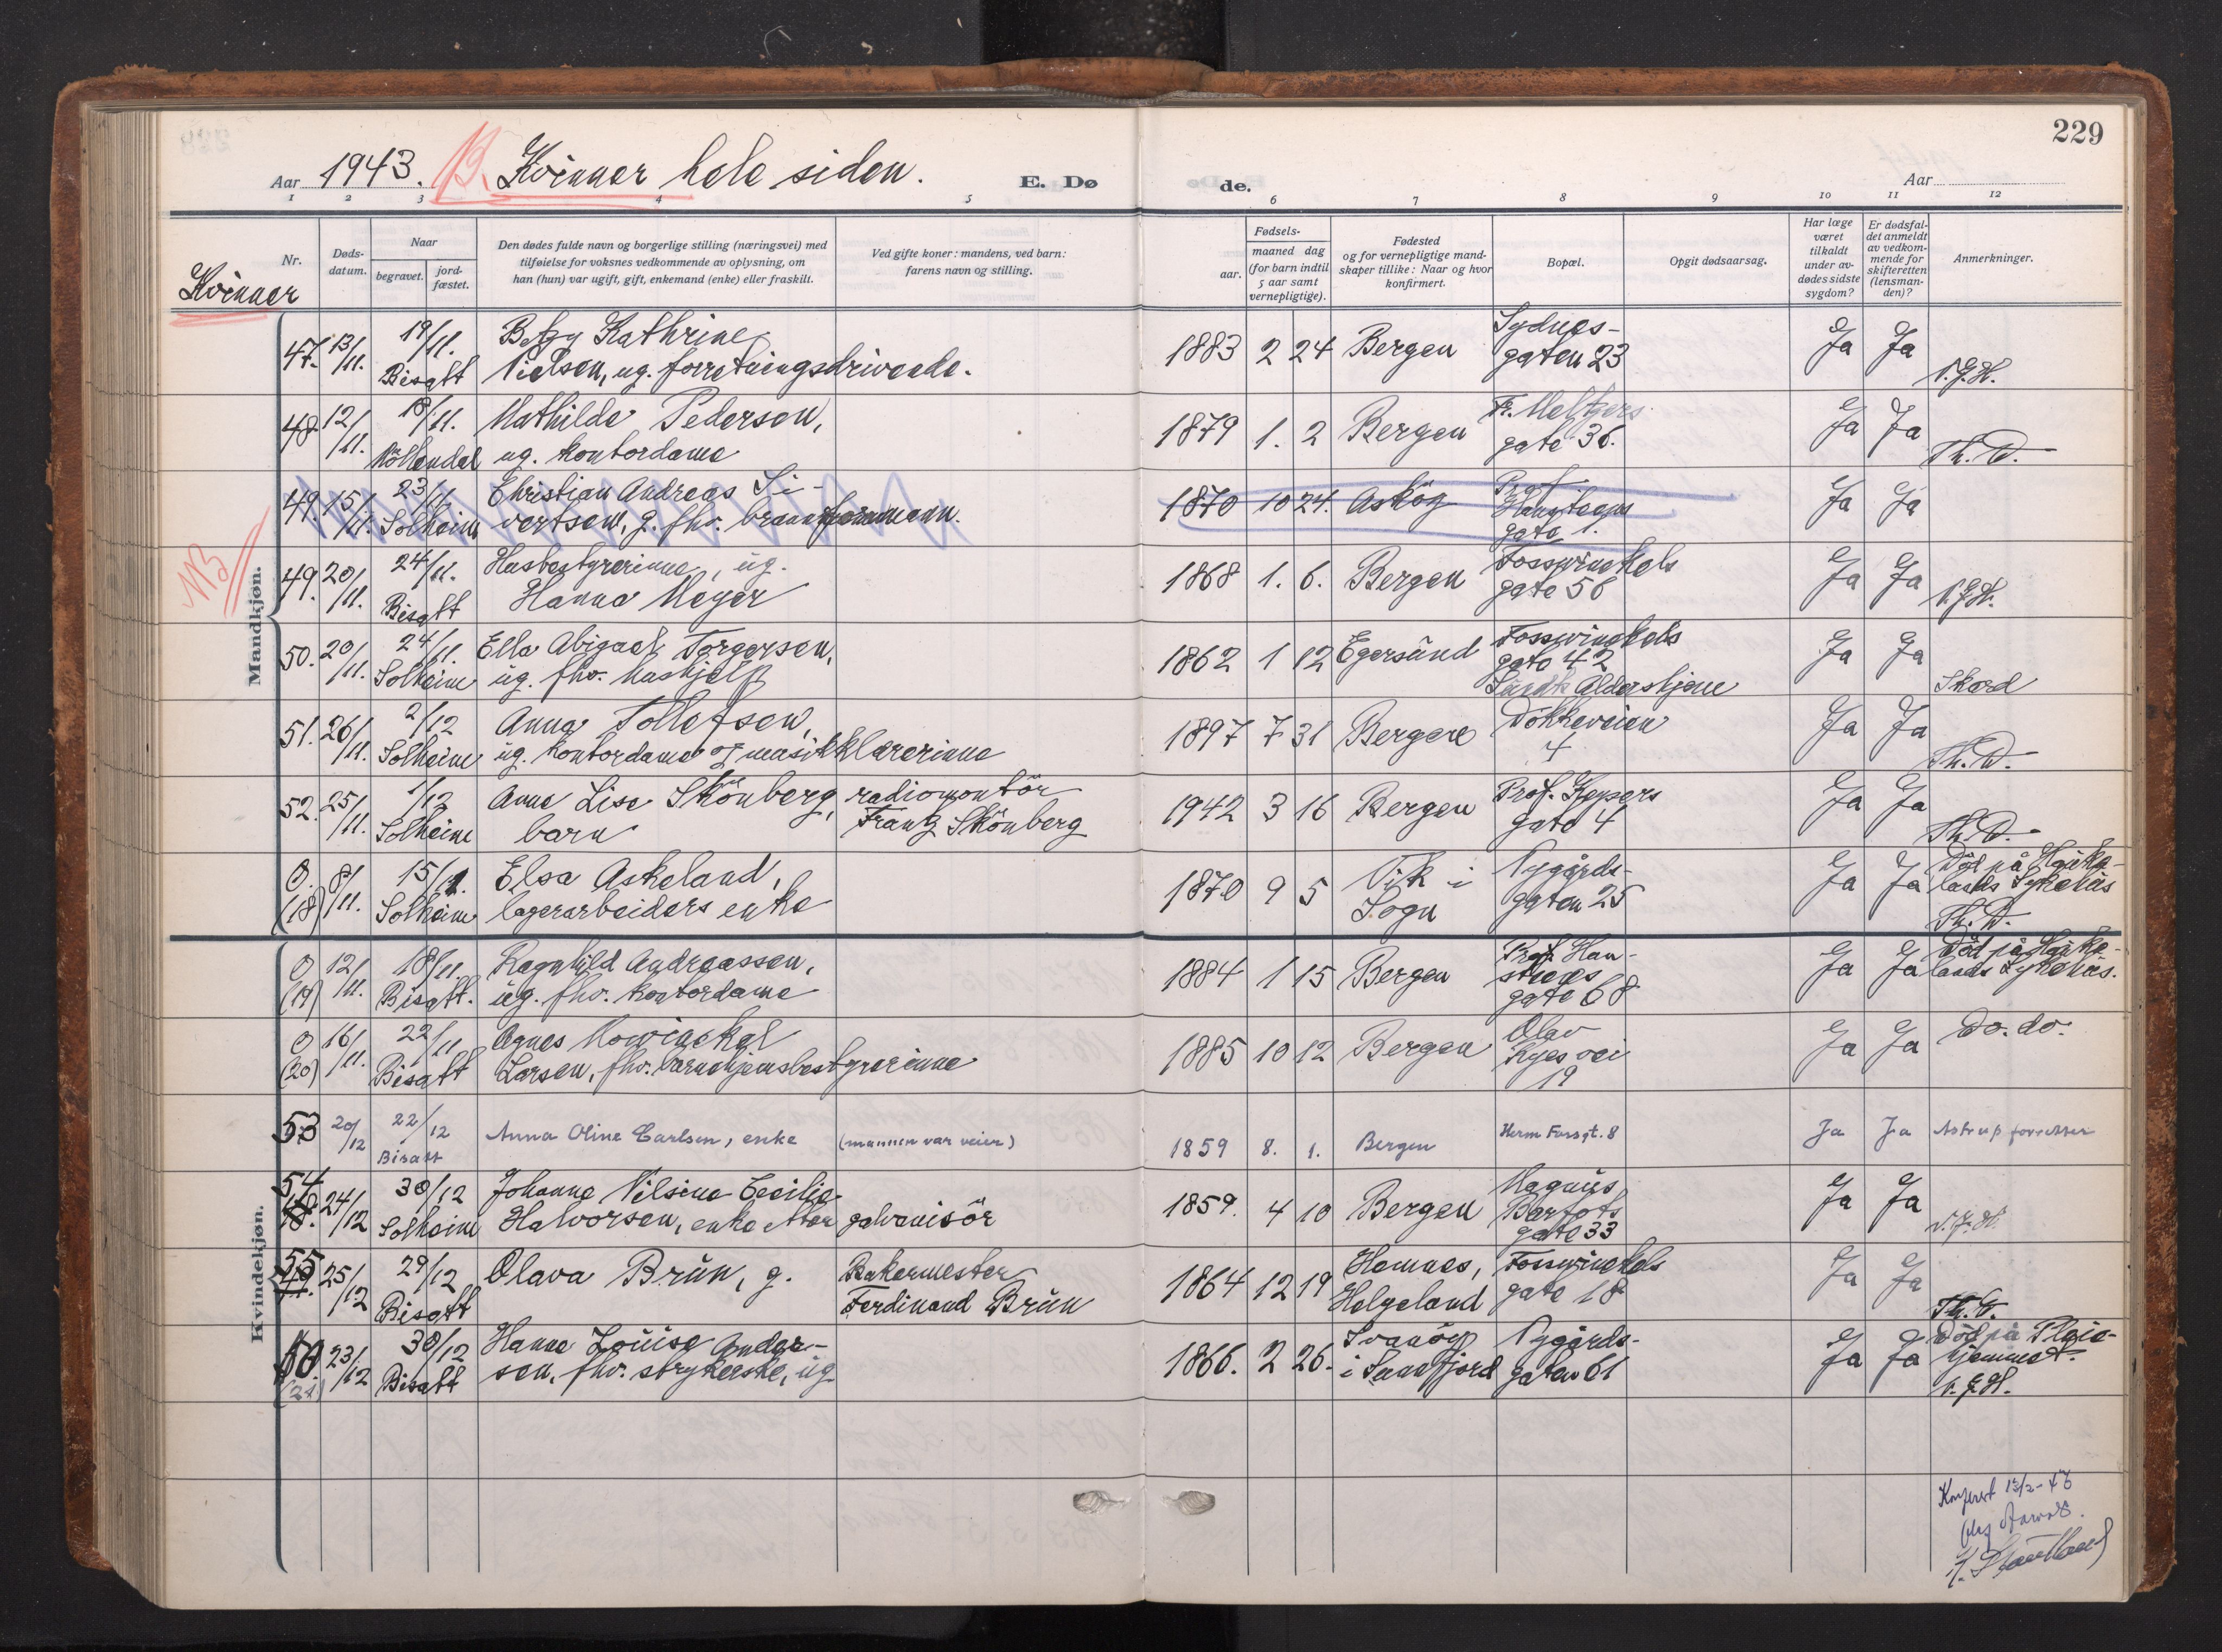 229
Aar 1943. NB. Kvinner hele siden. E. Dø
de. Aar
1 2 3 4 5 6 7 8 9 10 11 12
Nr.
Døds-
datum.
Naar
begravet.
jord-
fæstet.
Den dødes fulde navn og borgerlige stilling (næringsvei) med
tilføielse for voksnes vedkommende av oplysning, om
han (hun) var ugift, gift, enkemand (enke) eller fraskilt.
Ved gifte koner: mandens, ved barn:
farens navn og stilling.
Fødsels-
aar.
maaned dag
(for barn indtil
5 aar samt
vernepligtige).
Fødested
og for vernepligtige mand-
skaper tillike: Naar og hvor
konfirmert.
Bopæl.
Opgit dødsaarsag.
Har læge
været
tilkaldt
under av-
dødes sidste
sygdom?
Er dødsfal-
det anmeldt
av vedkom-
mende for
skifteretten
(lensman-
den)?
Anmerkninger.
Kvinner
NB
Mandkjøn.
47. 13/11. 19/11. Betzy Kathrine 1883 2 24 Bergen Sydnes- Ja Ja
Bisatt Nielsen, ug. forretningsdrivende. gaten 23
48. 12/11. 18/11. Mathilde Pedersen, 1879 1. 2 Bergen Fr. Meltzers Ja Ja
Möllendal ug. kontordame gate 36. Th. D.
49. 15/11. 23/11 Christian Andreas Si- 1870 10 24. Asköy Prof. Ja Ja
Solheim vertsen, g. fhv. brannformann. Hansteens
gate 1.
49. 20/11. 24/11. Husbestyrerinne, ug. 1868 1. 6. Bergen Fosswinckels Ja Ja
Bisatt Hanna Meyer gate 56
50. 20/11. 24/11. Ella Abigael Torgersen, 1862 1 12 Egersund Fosswinckels Ja Ja
Solheim ug. fhv. hushjelp gate 42 Skard
Aldershjem
51. 26/11. 2/12 Anna Tollefsen, 1897 7 31 Bergen Dökkeveien Ja Ja
Solheim ug. kontordame og musikklærerinne 4 Th. D.
52. 25/11. 1/12 Anne Lise Skönberg, radiomontör 1942 3 16 Bergen Prof. Keysers Ja Ja
Solheim barn Frantz Skönberg gate 4 Th. D.
0. (18) 8/11. 15/11. Elsa Askeland, 1870 9 5 Vik i Nygårds- Ja Ja Död på Hauke-
Solheim lagerarbeiders enke Sogn gaten 25 lands Sykehus
Th. D.
0 (19) 12/11. 18/11. Ragnhild Andreassen, 1884 1 15 Bergen Prof. Han- Ja Ja Död på Hauke-
Bisatt. ug. fhv. kontordame steens lands Sykehus.
gate 68
0 (20) 16/11. 22/11 Agnes Mowinckel 1885 10 12 Bergen Olav Ja Ja Do. do.
Bisatt Larsen, fhv. barnehjemsbestyrerinne Ryes vei
19
Kvindekjøn.
53 20/12 22/12 Anna Oline Carlsen, enke (mannen var veier) 1859 8. 1. Bergen Herm Fossgt. 8 Ja Ja Astrup forretter
Bisatt
54 24/12 30/12 Johanne Nilsine Cecilie 1859. 4 10 Bergen Magnus Ja Ja
Solheim Halvorsen, enke etter galvanisör Barfots
gate 33
55 25/12 29/12 Olava Brün, g. Bakermester 1864 12 19 Hemnes, Fosswinckels Ja Ja
Bisatt Ferdinand Brün Helgeland gate 18 Th. D.
(21) 23/12 30/12 Hanna Louise Ander- 1866. 2 26. Svanöy Nygårds- Ja Ja Död på Pleie-
Bisatt sen, fhv. strykerske, ug. i Sunnfjord gaten 61 hjemmet.